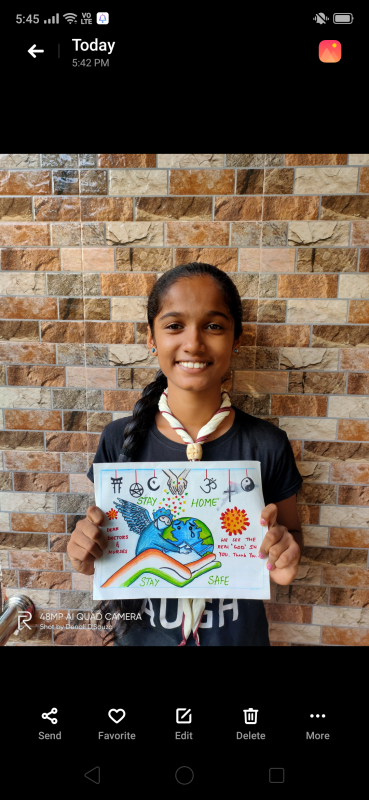 5:45
VO
LTE
Today
5:42 PM
STAY HOME
DEAR
DOCTORS
&
NURSES
WE SEE THE
REAL "GOD" IN
YOU. Thank You.
STAY SAFE
48MP AI QUAD CAMERA
Shot by Denali D'Souza
Send
Favorite
Edit
Delete
More